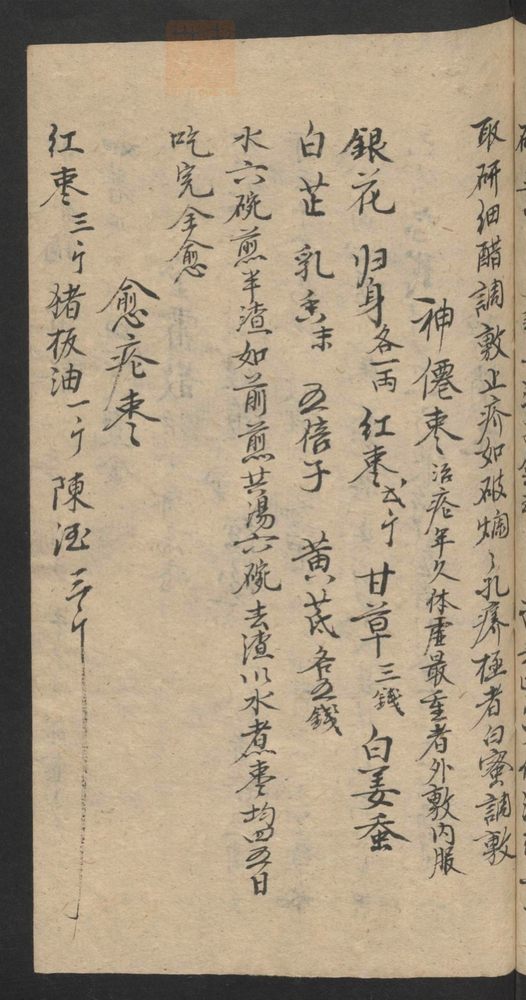 取研细醋調敷上疥如破爛ミ乳癢極者白蜜調敷
神僊枣 治疮年久体虚最重者外敷内服
銀花 归身各一両 红枣弍斤 甘草三錢 白姜蚕
白芷 乳香末 五倍子 黄芪各五錢
水六碗煎半渣如前煎共湯六碗去渣以水煮枣均四五日
吃完全愈
愈疮枣
红枣三斤 猪板油一斤 陳酒三斤